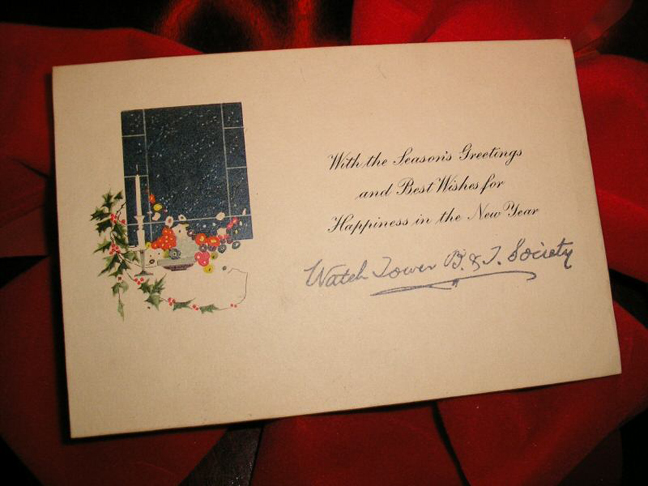 With the Season's Greetings
and Best Wishes for
Happiness in the New Year
Watch Tower B. & T. Society